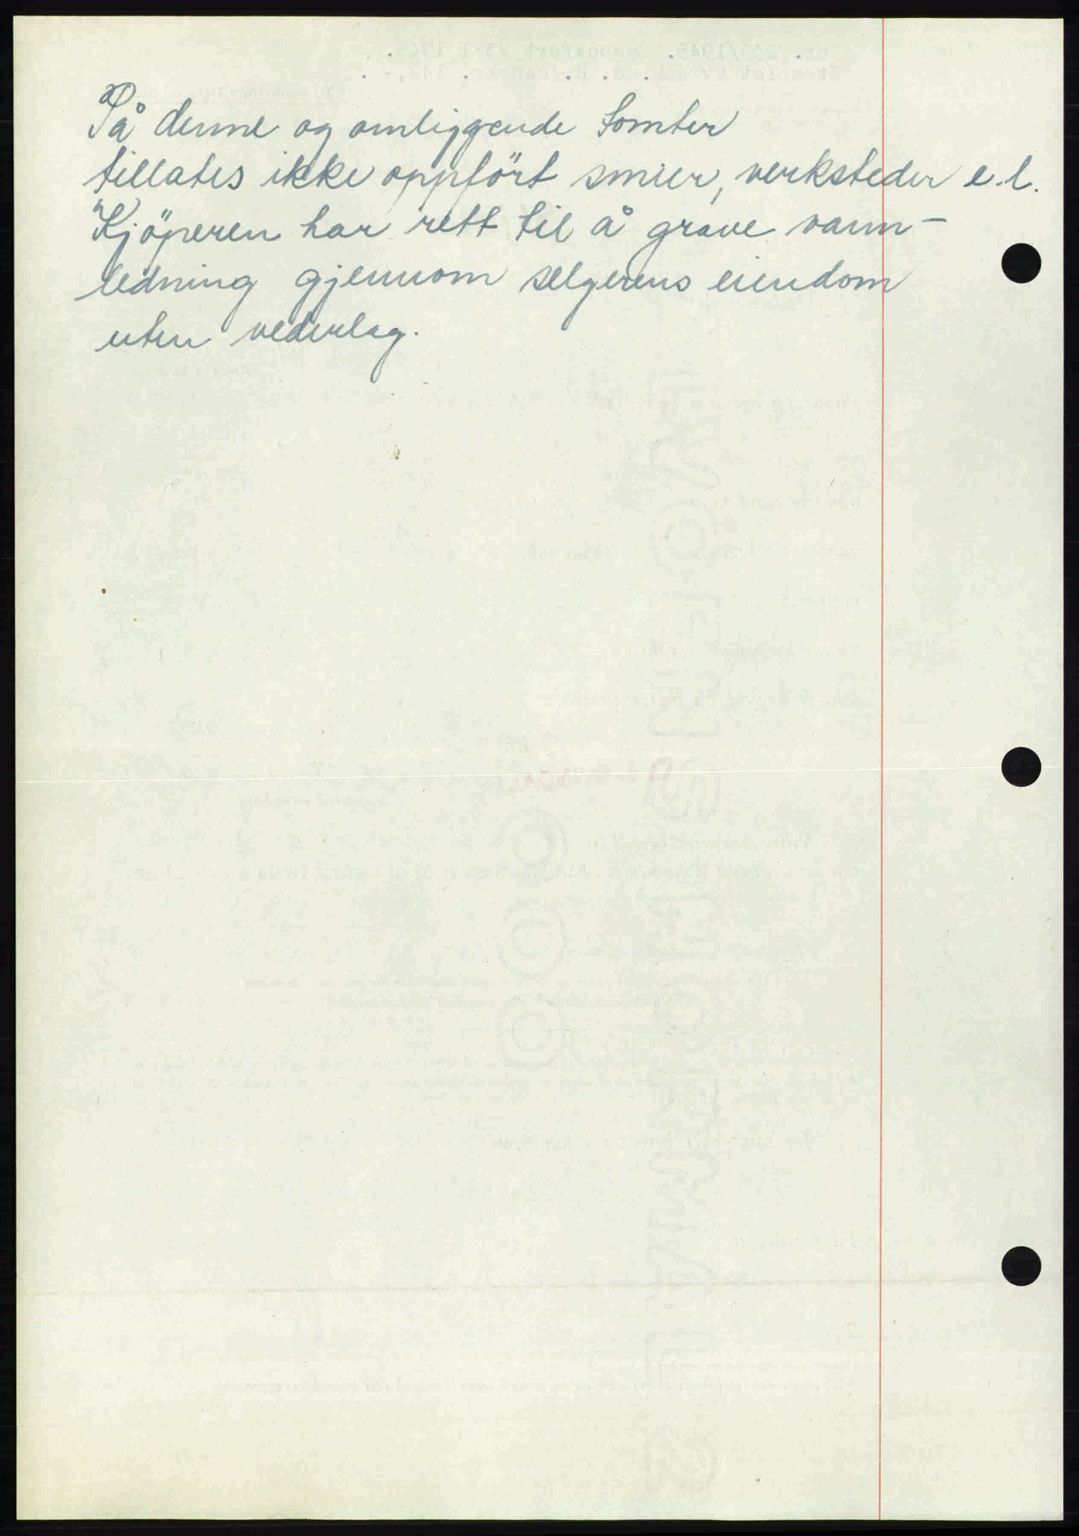 På denne og omliggende tomter
tillates ikke oppfört smier, verksteder e.l.
Kjöperen har rett til å grave vann-
ledning gjennom selgerens eiendom
uten vederlag.